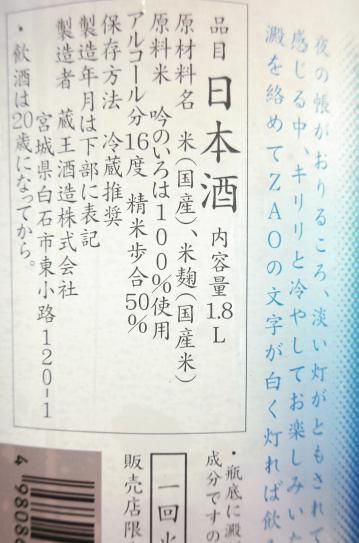 夜の帳がおりるころ、淡い灯がともされて
感じる中、キリリと冷やしてお楽しみいた
澱を絡めてZAOの文字が白く灯れば飲
品目 日本酒 内容量 1.8L
原材料名 米(国産)、米麹(国産米)
原料米 吟のいろは100%使用
アルコール分16度 精米歩合50%
保存方法 冷蔵推奨
製造年月は下部に表記
製造者 蔵王酒造株式会社
宮城県白石市東小路120-1
・飲酒は20歳になってから。
・瓶底に澱
成分ですの
一回火
販売店限